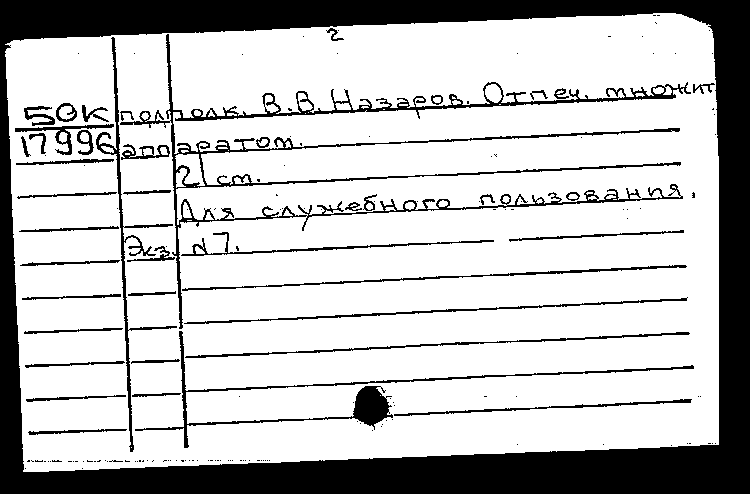 2
50К подполк. В.В. Назаров. Отпеч. множит
17996 аппаратом.
21 ст.
Для служебного пользования.
Экз. N 7.